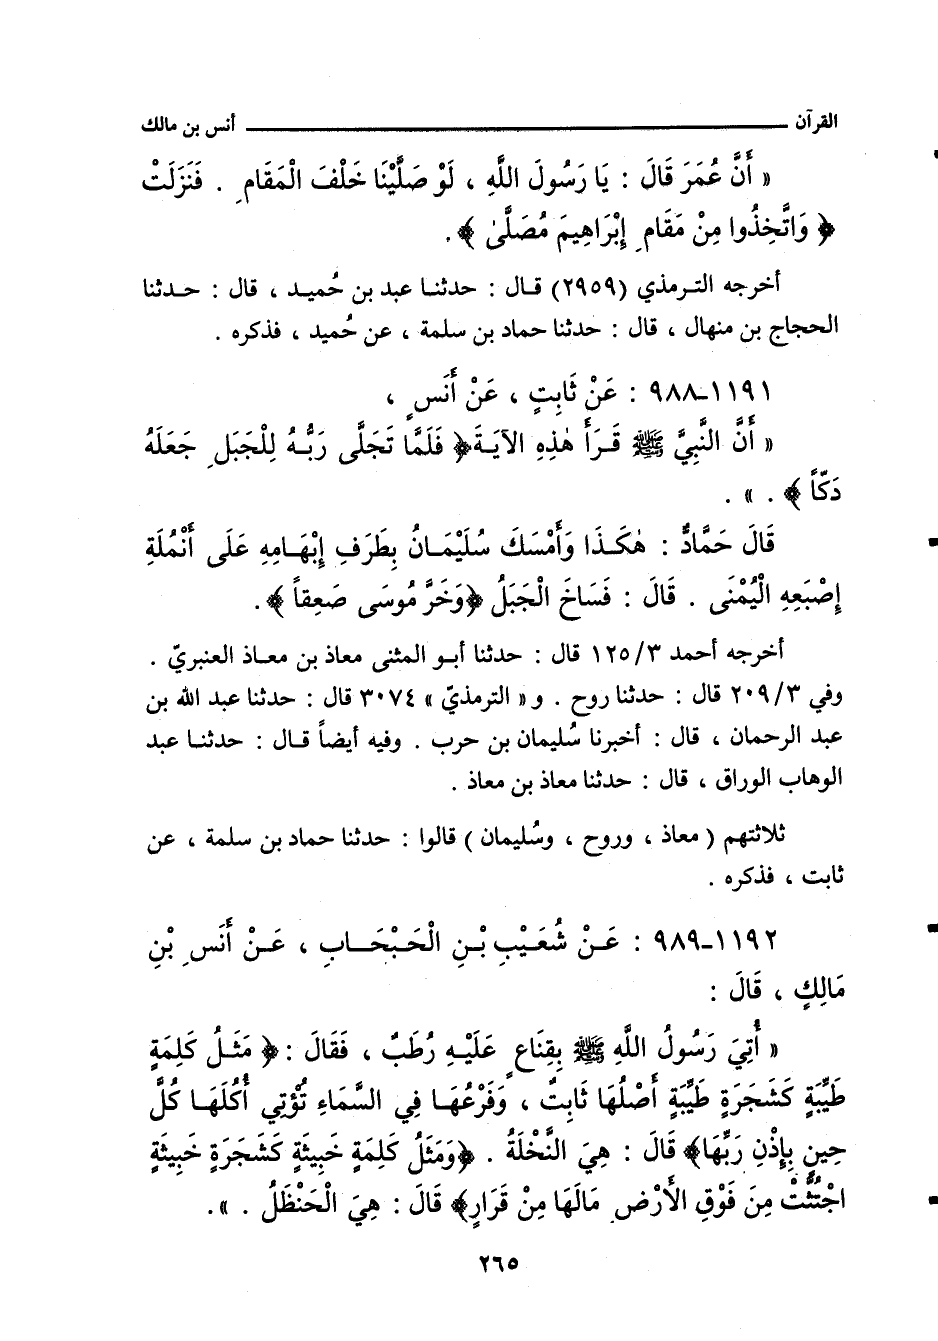 القرآن ــــــــــ أنس بن مالك
« أَنَّ عُمَرَ قَالَ : يَا رَسُولَ اللَّهِ ، لَوْ صَلَّيْنَا خَلْفَ الْمَقَامِ . فَنَزَلَتْ
﴿ وَاتَّخِذُوا مِنْ مَقَامِ إِبْرَاهِيمَ مُصَلَّىٰ ﴾ .
أخرجه الترمذي (٢٩٥٩) قال : حدثنا عبد بن حُميد ، قال : حدثنا
الحجاج بن منهال ، قال : حدثنا حماد بن سلمة ، عن حُميد ، فذكره .
١١٩١-٩٨٨ : عَنْ ثَابِتٍ ، عَنْ أَنَسٍ ،
« أَنَّ النَّبِيَّ ﷺ قَرَأَ هٰذِهِ الآيَةَ ﴿ فَلَمَّا تَجَلَّى رَبُّهُ لِلْجَبَلِ جَعَلَهُ
دَكّاً ﴾ . » .
قَالَ حَمَّادٌ : هٰكَذَا وَأَمْسَكَ سُلَيْمَانُ بِطَرَفِ إِبْهَامِهِ عَلَى أَنْمُلَةِ
إِصْبَعِهِ الْيُمْنَى . قَالَ : فَسَاخَ الْجَبَلُ ﴿وَخَرَّ مُوسَى صَعِقاً ﴾ .
أخرجه أحمد ٣/١٢٥ قال : حدثنا أبو المثنى معاذ بن معاذ العنبريّ .
وفي ٣/٢٠٩ قال : حدثنا روح . و« الترمذيّ » ٣٠٧٤ قال : حدثنا عبد الله بن
عبد الرحمان ، قال : أخبرنا سُليمان بن حرب . وفيه أيضاً قال : حدثنا عبد
الوهاب الوراق ، قال : حدثنا معاذ بن معاذ .
ثلاثتهم ( معاذ ، وروح ، وسُليمان ) قالوا : حدثنا حماد بن سلمة ، عن
ثابت ، فذكره .
١١٩٢-٩٨٩ : عَنْ شُعَيْبِ بْنِ الْحَبْحَابِ ، عَنْ أَنَسِ بْنِ
مَالِكٍ ، قَالَ :
« أُتِيَ رَسُولُ اللَّهِ ﷺ بِقِنَاعٍ عَلَيْهِ رُطَبٌ ، فَقَالَ : ﴿ مَثَلُ كَلِمَةٍ
طَيِّبَةٍ كَشَجَرَةٍ طَيِّبَةٍ أَصْلُهَا ثَابِتٌ ، وَفَرْعُهَا فِي السَّمَاءِ تُؤْتِي أُكُلَهَا كُلَّ
حِينٍ بِإِذْنِ رَبِّهَا﴾ قَالَ : هِيَ النَّخْلَةُ . ﴿وَمَثَلُ كَلِمَةٍ خَبِيثَةٍ كَشَجَرَةٍ خَبِيثَةٍ
اجْتُثَّتْ مِنَ فَوْقِ الأَرْضِ مَالَهَا مِنْ قَرَارٍ﴾ قَالَ : هِيَ الْحَنْظَلُ . » .
٢٦٥